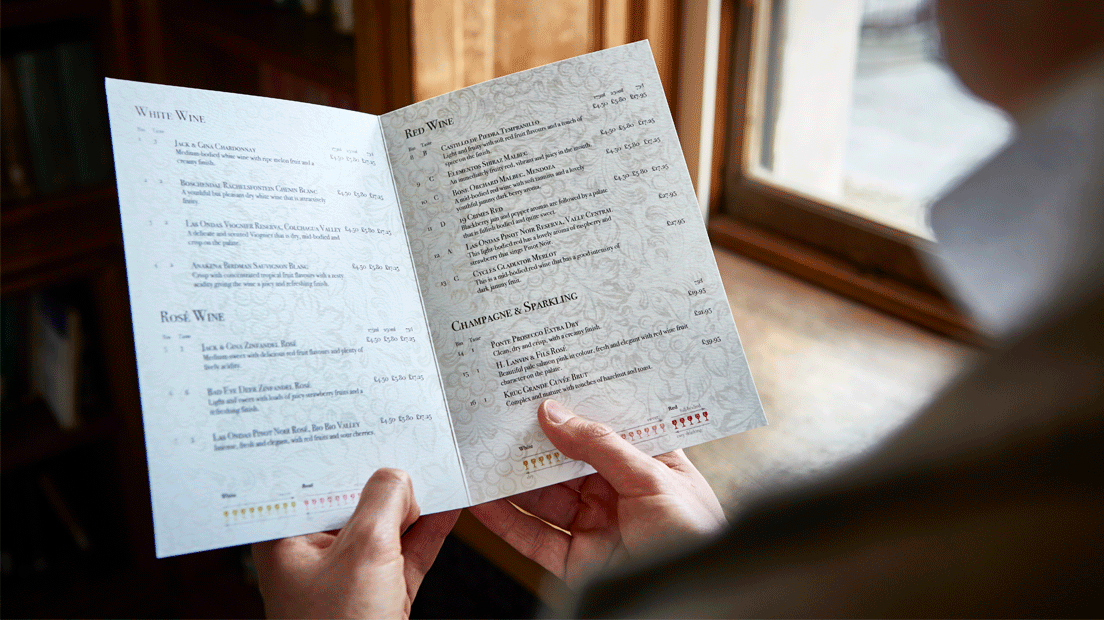 White Wine
Bin Taste
175ml 250ml 75cl
Jack & Gina Chardonnay
£4.50 £5.80 £17.25
Medium-bodied white wine with ripe melon fruit and a
creamy finish.
Boschendal Rachelsfontein Chenin Blanc £4.50 £5.80 £17.25
A youthful but pleasant dry white wine that is attractively
fruity.
Las Ondas Viognier Reserva, Colchagua Valley £4.50 £5.80 £17.25
A delicate and scented Viognier that is dry, mid-bodied and
crisp on the palate.
Anakena Birdman Sauvignon Blanc £4.50 £5.80 £17.25
Crisp with concentrated tropical fruit flavours with a zesty
acidity giving the wine a juicy and refreshing finish.
Rosé Wine
Bin Taste
175ml 250ml 75cl
Jack & Gina Zinfandel Rosé £4.50 £5.80 £17.25
Medium sweet with delicious red fruit flavours and plenty of
lively acidity.
Bad Eye Deer Zinfandel Rosé £4.50 £5.80 £17.25
Light and sweet with loads of juicy strawberry fruits and a
refreshing finish.
Las Ondas Pinot Noir Rosé, Bio Bio Valley £4.50 £5.80 £17.25
Intense, fresh and elegant, with red fruits and sour cherries.
White Rosé
Red Wine
Bin Taste
175ml 250ml 75cl
8 B Castillo de Piedra Tempranillo £4.50 £5.80 £17.25
Light and fruity with soft red fruit flavours and a touch of
spice on the finish.
9 C Elementos Shiraz Malbec £4.50 £5.80 £17.25
An immediately fruity red, vibrant and juicy in the mouth.
10 C Boss Orchard Malbec, Mendoza £4.50 £5.80 £17.25
A mid-bodied red wine with soft tannins and a lovely
youthful jammy dark berry aroma.
11 D 19 Crimes Red £4.50 £5.80 £17.25
Blackberry jam and pepper aromas are followed by a palate
that is full-bodied and quite sweet.
12 A Las Ondas Pinot Noir Reserva, Valle Central £17.95
This light-bodied red has a lovely aroma of raspberry and
strawberry that sings Pinot Noir.
13 C Cycles Gladiator Merlot £17.95
This is a mid-bodied red wine that has a good intensity of
dark jammy fruit.
Champagne & Sparkling
Bin Taste
75cl
14 1 Ponte Prosecco Extra Dry £19.95
Clean, dry and crisp, with a creamy finish.
15 1 H. Lanvin & Fils Rosé £21.95
Beautiful pale salmon pink in colour, fresh and elegant with red wine fruit
character on the palate.
16 1 Krug Grande Cuvée Brut £39.95
Complex and mature with touches of hazelnut and toast.
White
Red